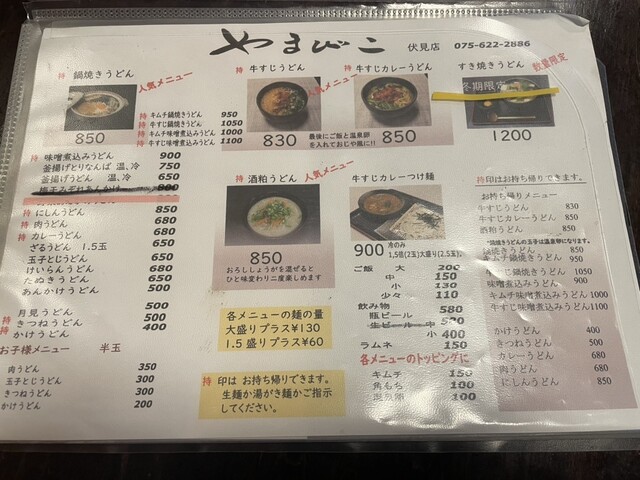 やまびこ 伏見店 075-622-2886
持 鍋焼きうどん
人気メニュー
850
持 キムチ鍋焼きうどん 950
持 牛すじ鍋焼きうどん 1050
持 キムチ味噌煮込うどん 1000
持 牛すじ味噌煮込うどん 1100
持 牛すじうどん
人気メニュー
830
最後にご飯と温泉卵
を入れておじや風に!!
持 牛すじカレーうどん
850
すき焼きうどん
数量限定
冬期限定
1200
持 味噌煮込みうどん 900
釜揚げとりなんば 温、冷 750
釜揚げうどん 温、冷 650
梅干みぞれあんかけ 800
持 にしんうどん 850
持 肉うどん 680
持 カレーうどん 680
ざるうどん 1.5玉 650
玉子とじうどん 650
けいらんうどん 680
たぬきうどん 650
あんかけうどん 500
月見うどん 500
持 きつねうどん 500
持 かけうどん 400
お子様メニュー 半玉
肉うどん 350
玉子とじうどん 300
きつねうどん 300
かけうどん 200
持 酒粕うどん
人気メニュー
850
おろししょうがを混ぜると
ひと味変わり二度楽しめます
各メニューの麺の量
大盛りプラス¥130
1.5盛りプラス¥60
持 印は お持ち帰りできます。
生麺か湯がき麺かご指示
してください。
牛すじカレーつけ麺
900 冷のみ
1,5倍(2玉)大盛り(2.5玉)
ご飯 大 200
中 150
小 130
少々 110
飲み物
瓶ビール 580
生ビール 中 500
小 400
ラムネ 150
各メニューのトッピングに
キムチ 150
角もち 100
100
持印はお持ち帰りできます。
お持ち帰りメニュー
牛すじうどん 830
牛すじカレーうどん 850
酒粕うどん 850
*鍋焼きうどんの玉子は温泉卵になります。
鍋焼きうどん 850
キムチ鍋焼きうどん 950
牛すじ鍋焼うどん 1050
味噌煮込みうどん 900
キムチ味噌煮込うどん 1000
牛すじ味噌煮込うどん 1100
かけうどん 400
きつねうどん 500
カレーうどん 680
肉うどん 680
にしんうどん 850